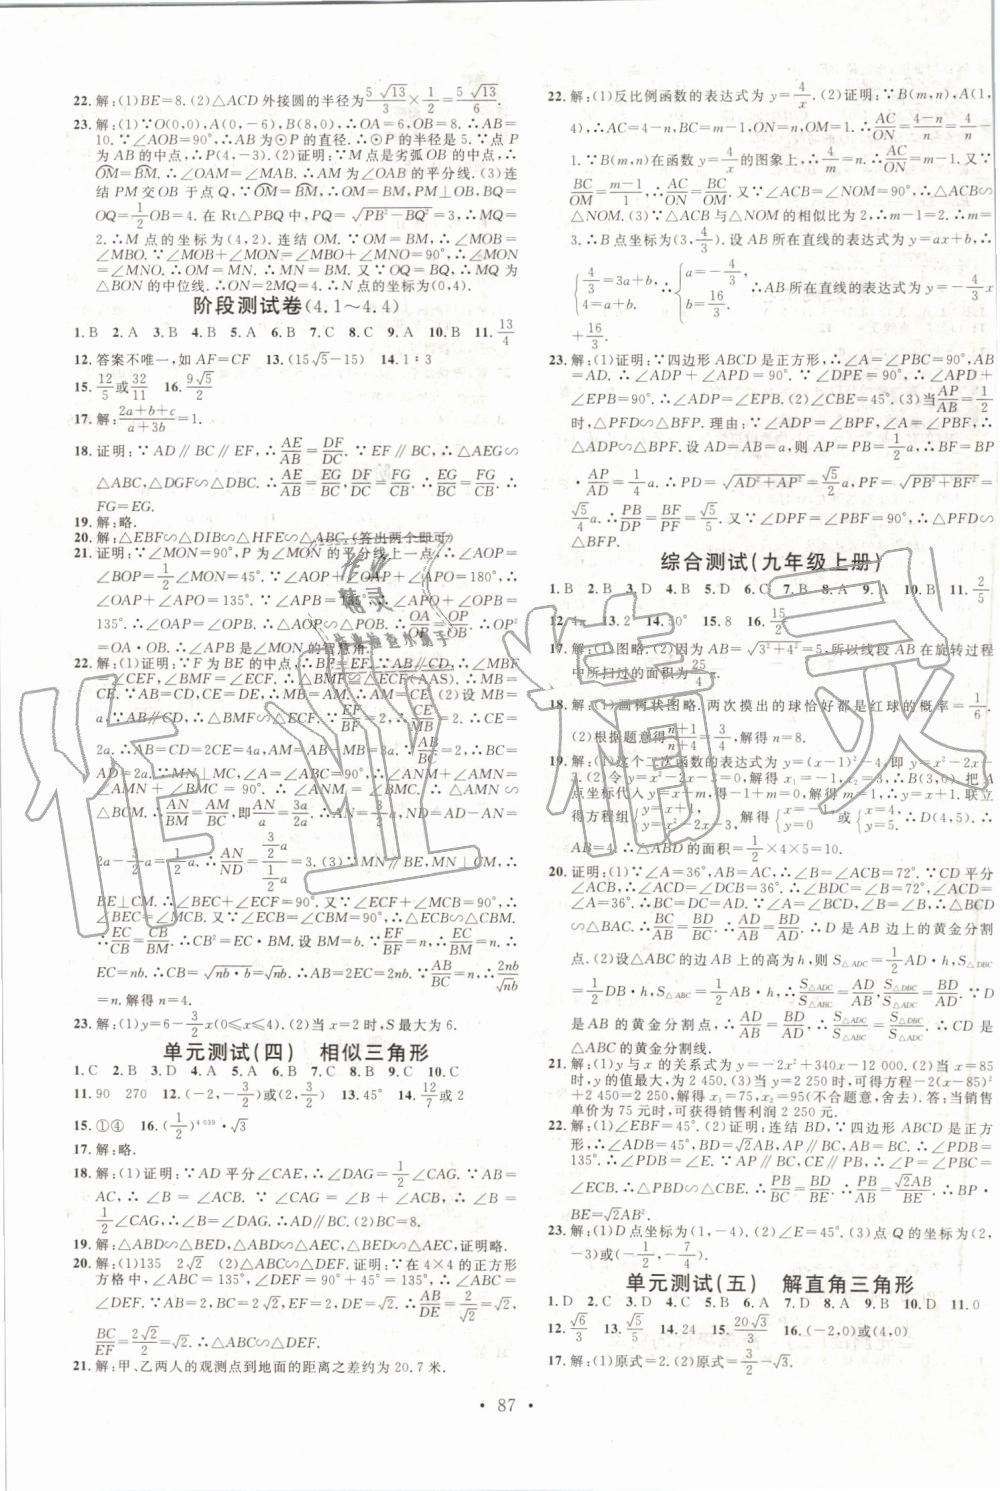 22. 解:(1)BE=8.(2)△ACD外接圆的半径为5√13/3×1/2=5√13/6.
23. 解:(1)∵O(0,0),A(0,-6),B(8,0),∴OA=6,OB=8.∴AB=
10.∵∠AOB=90°,∴AB为⊙P的直径.∴⊙P的半径是5.∵点P
为AB的中点,∴P(4,-3).(2)证明:∵M点是劣弧OB的中点,∴
OM=BM.∴∠OAM=∠MAB.∴AM为∠OAB的平分线.(3)连
结PM交OB于点Q,∵OM=BM,∴OM=BM,PM⊥OB,BQ=
OQ=1/2OB=4.在Rt△PBQ中,PQ=√(PB²-BQ²)=3,∴MQ=
2.∴M点的坐标为(4,2).连结OM.∵OM=BM,∴∠MOB=
∠MBO.∵∠MOB+∠NOM=∠MBO+∠MNO=90°,∴∠NOM
=∠MNO.∴OM=MN.∴MN=MB.又∵OQ=BQ,∴MQ为
△BON的中位线.∴ON=2MQ=4.∴N点的坐标为(0,4).
阶段测试卷(4.1~4.4)
1. B 2. A 3. B 4. B 5. A 6. B 7. C 8. C 9. A 10. B 11. 13/4
12. 答案不唯一,如AF=CF 13. (15√5-15) 14. 1∶3
15. 12/5或32/11 16. 9√5/2
17. 解:(2a+b+c)/(a+3b)=1.
18. 证明:∵AD∥BC∥EF,∴AE/AB=DF/DC.∵EF∥BC,∴△AEG∽
△ABC,△DGF∽△DBC.∴AE/AB=EG/BC,DF/DC=FG/CB.∴EG/BC=FG/CB.∴
FG=EG.
19. 解:略.
20. 解:△EBF∽△DIB∽△HFE∽△ABC.(答出两个即可)
21. 证明:∵∠MON=90°,P为∠MON的平分线上一点,∴∠AOP=
∠BOP=1/2∠MON=45°.∵∠AOP+∠OAP+∠APO=180°,∴
∠OAP+∠APO=135°.∵∠APB=135°,∴∠APO+∠OPB=
135°.∴∠OAP=∠OPB.∴△AOP∽△POB.∴OA/OP=OP/OB.∴OP²
=OA·OB.∴∠APB是∠MON的智慧角.
22. 解:(1)证明:∵F为BE的中点,∴BF=EF.∵AB∥CD,∴∠MBF
=∠CEF,∠BMF=∠ECF.∴△BMF≌△ECF(AAS).∴MB=
CE.∵AB=CD,CE=DE,∴MB=AM.∴AM=CE.(2)设MB=
a.∵AB∥CD,∴△BMF∽△ECF.∵EF/BF=2,∴CE/BM=2.∴CE=
2a.∴AB=CD=2CE=4a,AM=AB-MB=3a.∵AB/BC=2,∴BC=
AD=2a.∵MN⊥MC,∠A=∠ABC=90°,∴∠AMN+∠ANM=
∠AMN+∠BMC=90°.∴∠ANM=∠BMC.∴△AMN∽
△BCM.∴AN/BM=AM/BC,即AN/a=3a/2a.∴AN=3/2a,ND=AD-AN=
2a-3/2a=1/2a.∴AN/ND=(3/2a)/(1/2a)=3.(3)∵MN∥BE,MN⊥CM,∴
BE⊥CM.∴∠BEC+∠ECM=90°.又∵∠BCM+∠ECM=90°,∴
∠BEC=∠MCB.又∵∠MBC=∠BCE=90°,∴△MBC∽△BCE.
∴EC/CB=CB/BM.∴CB²=EC·BM.设BM=b.∵EF/BF=n,∴EC/BM=n.∴
EC=nb.∴CB=√(nb·b)=√nb,AB=CD=2EC=2nb.∵AB/BC=n,∴2nb/√nb
=n.解得n=4.
23. 解:(1)y=6-3/2x(0≤x≤4).(2)当x=2时,S最大为6.
单元测试(四) 相似三角形
1. C 2. B 3. D 4. C 5. A 6. D 7. B 8. B 9. C 10. C
11. 90 270 12. (-2,-3/2)或(2,3/2) 13. 4 14. 12/7或2
15. ①④ 16. (1/2)^4039·√3
17. 解:略.
18. 解:(1)证明:∵AD平分∠CAE,∴∠DAG=1/2∠CAG.∵AB=
AC,∴∠B=∠ACB.∵∠CAG=∠B+∠ACB,∴∠B=
1/2∠CAG,∴∠B=∠DAG,∴AD∥BC.(2)CG=8.
19. 解:△ABD∽△BED,△ABD∽△AEC,△BED∽△AEC,证明略.
20. 解:(1)135 2√2 (2)△ABC∽△DEF.证明:∵在4×4的正方形
方格中,∠ABC=135°,∠DEF=90°+45°=135°,∴∠ABC=
∠DEF.∵AB=2,BC=2√2,FE=2,DE=√2.∴AB/DE=2/√2=√2,
BC/EF=2√2/2=√2.∴△ABC∽△DEF.
21. 解:甲、乙两人的观测点到地面的距离之差约为20.7米.
22. 解:(1)反比例函数的表达式为y=4/x.(2)证明:∵B(m,n),A(1,
4),∴AC=4-n,BC=m-1,ON=n,OM=1.∴AC/ON=(4-n)/n=4/n-
1.∵B(m,n)在函数y=4/x的图象上,∴4/n=m.∴AC/ON=m-1.又∵
BC/OM=(m-1)/1,∴AC/ON=BC/OM.又∵∠ACB=∠NOM=90°,∴△ACB∽
△NOM.(3)∵△ACB与△NOM的相似比为2,∴m-1=2.∴m=
3.∴B点坐标为(3,4/3).设AB所在直线的表达式为y=ax+b,∴
{4/3=3a+b, 4=a+b.∴{a=-4/3, b=16/3.∴AB所在直线的表达式为y=-4/3x+
16/3.
23. 解:(1)证明:∵四边形ABCD是正方形,∴∠A=∠PBC=90°,AB
=AD.∴∠ADP+∠APD=90°.∵∠DPE=90°,∴∠APD+
∠EPB=90°.∴∠ADP=∠EPB.(2)∠CBE=45°.(3)当AP/AB=1/2
时,△PFD∽△BFP.理由:∵∠ADP=∠EPB,∠A=∠PBF,
∴△ADP∽△BPF.设AD=AB=a,则AP=PB=1/2a,∴BF=BP·
AP/AD=1/4a.∴PD=√(AD²+AP²)=√5/2a,PF=√(PB²+BF²)=
√5/4a.∴PB/PD=BF/PF=√5/5.又∵∠DPF=∠PBF=90°,∴△PFD∽
△BFP.
综合测试(九年级上册)
1. B 2. B 3. D 4. D 5. B 6. C 7. B 8. A 9. A 10. B 11. 2/5
12. 4π 13. 2 14. 50° 15. 8 16. 15/2
17. 解:(1)图略.(2)∵AB=√(3²+4²)=5,∴所以线段AB在旋转过程
中所扫过的面积为25/4π.
18. 解:(1)画树状图略.两次摸出的球恰好都是红球的概率=1/6.
(2)根据题意得(n+1)/(n+4)=3/4,解得n=8.
19. 解:(1)这个二次函数的表达式为y=(x-1)²-4,即y=x²-2x-
3.(2)令y=x²-2x-3=0,解得x₁=-1,x₂=3.∴B(3,0).把A
点坐标代入y=x+m,得-1+m=0,解得m=1.∴y=x+1.联立
得方程组{y=x+1, y=x²-2x-3.解得{x=-1, y=0或{x=4, y=5.∴D(4,5).∴AB
=4.∴△ABD的面积=1/2×4×5=10.
20. 证明:(1)∵∠A=36°,AB=AC,∴∠B=∠ACB=72°.∵CD平分
∠ACB,∴∠ACD=∠DCB=36°.∴∠BDC=72°.∴∠A=
∠ACD.∴BC=DC=AD.∵∠A=∠BCD,∠B=∠B,∴△BCD
∽△BAC.∴BC/AB=BD/BC.∴AD/AB=BD/AD.∴D是AB边上的黄金分割
点.(2)设△ABC的边AB上的高为h,则S△ADC=1/2AD·h,S△DBC
=1/2DB·h,S△ABC=1/2AB·h,∴S△ADC/S△ABC=AD/AB,S△DBC/S△ADC=BD/AD.∵D
是AB的黄金分割点,∴AD/AB=BD/AD.∴S△ADC/S△ABC=S△DBC/S△ADC.∴CD是
△ABC的黄金分割线.
21. 解:(1)y与x的关系式为y=-2x²+340x-12 000.(2)当x=85
时,y的值最大,为2 450.(3)当y=2 250时,可得方程-2(x-85)²
+2 450=2 250.解得x₁=75,x₂=95(不合题意,舍去).答:当销售
单价为75元时,可获得销售利润2 250元.
22. 解:(1)∠EBF=45°.(2)证明:连结BD,∵四边形ABCD是正方
形,∴∠ADB=45°,BD=√2AB,AP∥BC,AB=BC.∴∠PDB=
135°.∵∠BCE=135°,∴∠PDB=∠BCE.∵AP∥BC,∴∠P=∠PBC=
∠ECB.∴△PDB∽△BCE.∴PB/BE=BD/BC.∴PB/BE=√2AB/BE.∴BP·
BE=√2AB².
23. 解:(1)D点坐标为(1,-4).(2)∠E=45°.(3)点Q的坐标为(1,
-2)或(-1/2,-7/4).
单元测试(五) 解直角三角形
1. D 2. C 3. C 4. A 5. C 6. A 7. D 8. A 9. C 10. D 11. 0
12. √6/3 13. √5/5 14. 24 15. 20√3/3 16. (-2,0)或(4,0)
17. 解:(1)原式=2.(2)原式=3/2-√3.
· 87 ·